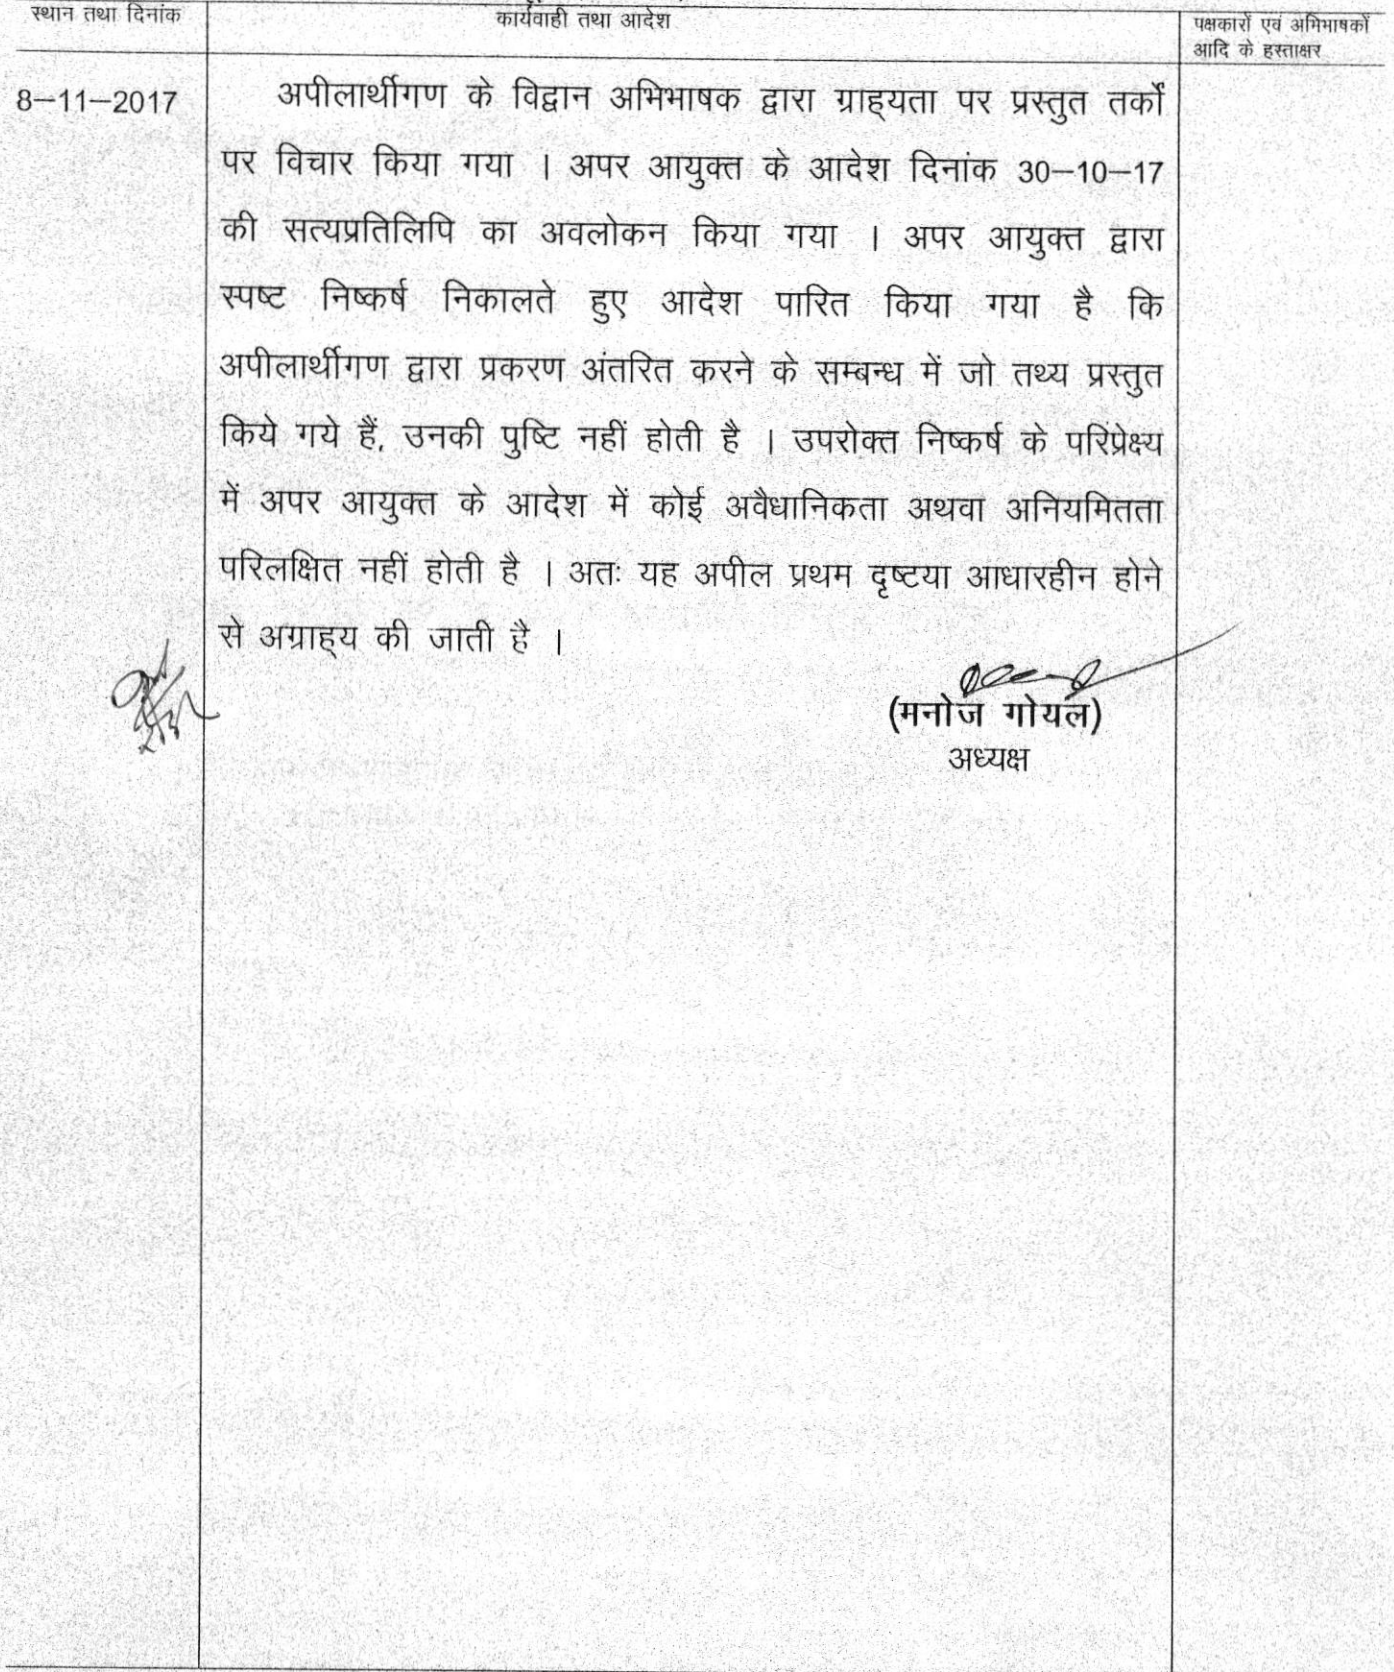 स्थान तथा दिनांक
कार्यवाही तथा आदेश
पक्षकारों एवं अभिभाषकों
आदि के हस्ताक्षर
8–11–2017
अपीलार्थीगण के विद्वान अभिभाषक द्वारा ग्राह्यता पर प्रस्तुत तर्को
पर विचार किया गया । अपर आयुक्त के आदेश दिनांक 30–10–17
की सत्यप्रतिलिपि का अवलोकन किया गया । अपर आयुक्त द्वारा
स्पष्ट निष्कर्ष निकालते हुए आदेश पारित किया गया है कि
अपीलार्थीगण द्वारा प्रकरण अंतरित करने के सम्बन्ध में जो तथ्य प्रस्तुत
किये गये हैं, उनकी पुष्टि नहीं होती है । उपरोक्त निष्कर्ष के परिंप्रेक्ष्य
में अपर आयुक्त के आदेश में कोई अवैधानिकता अथवा अनियमितता
परिलक्षित नहीं होती है । अतः यह अपील प्रथम दृष्टया आधारहीन होने
से अग्राह्य की जाती है ।
(मनोज गोयल)
अध्यक्ष